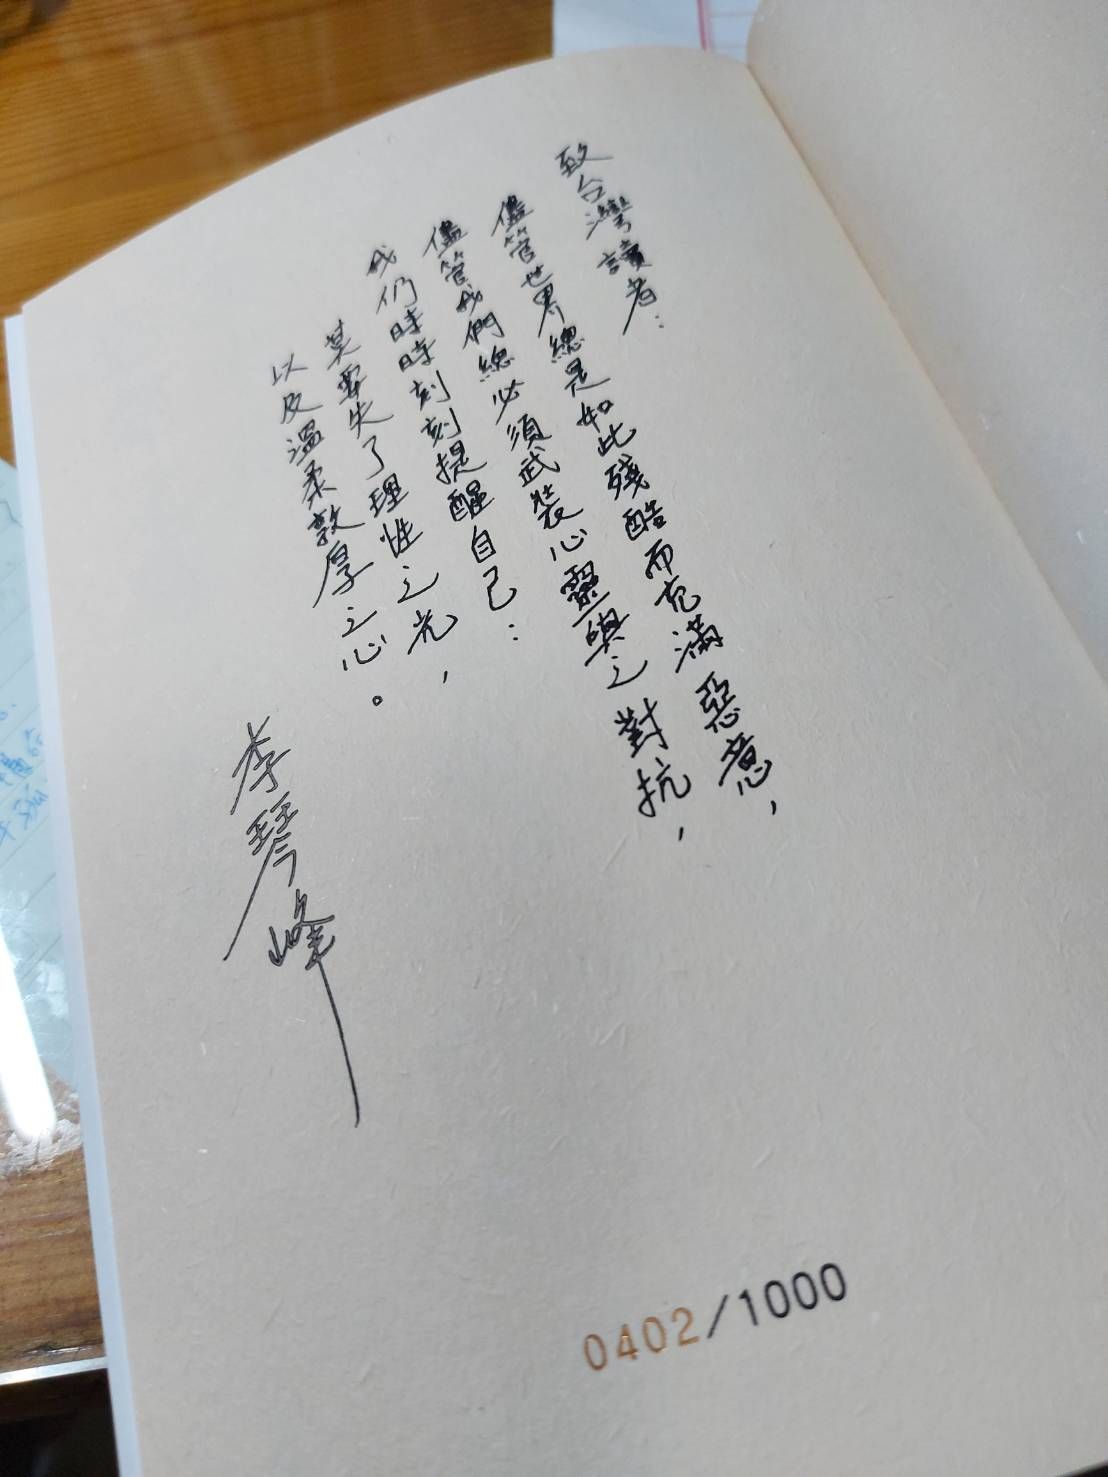 致台灣讀者：
儘管世界總是如此殘酷而充滿惡意，
儘管我們總必須武裝心靈與之對抗，
我们時時刻刻提醒自己：
莫要失了理性之光，
以及溫柔敦厚之心。
李琴峰
0402/1000